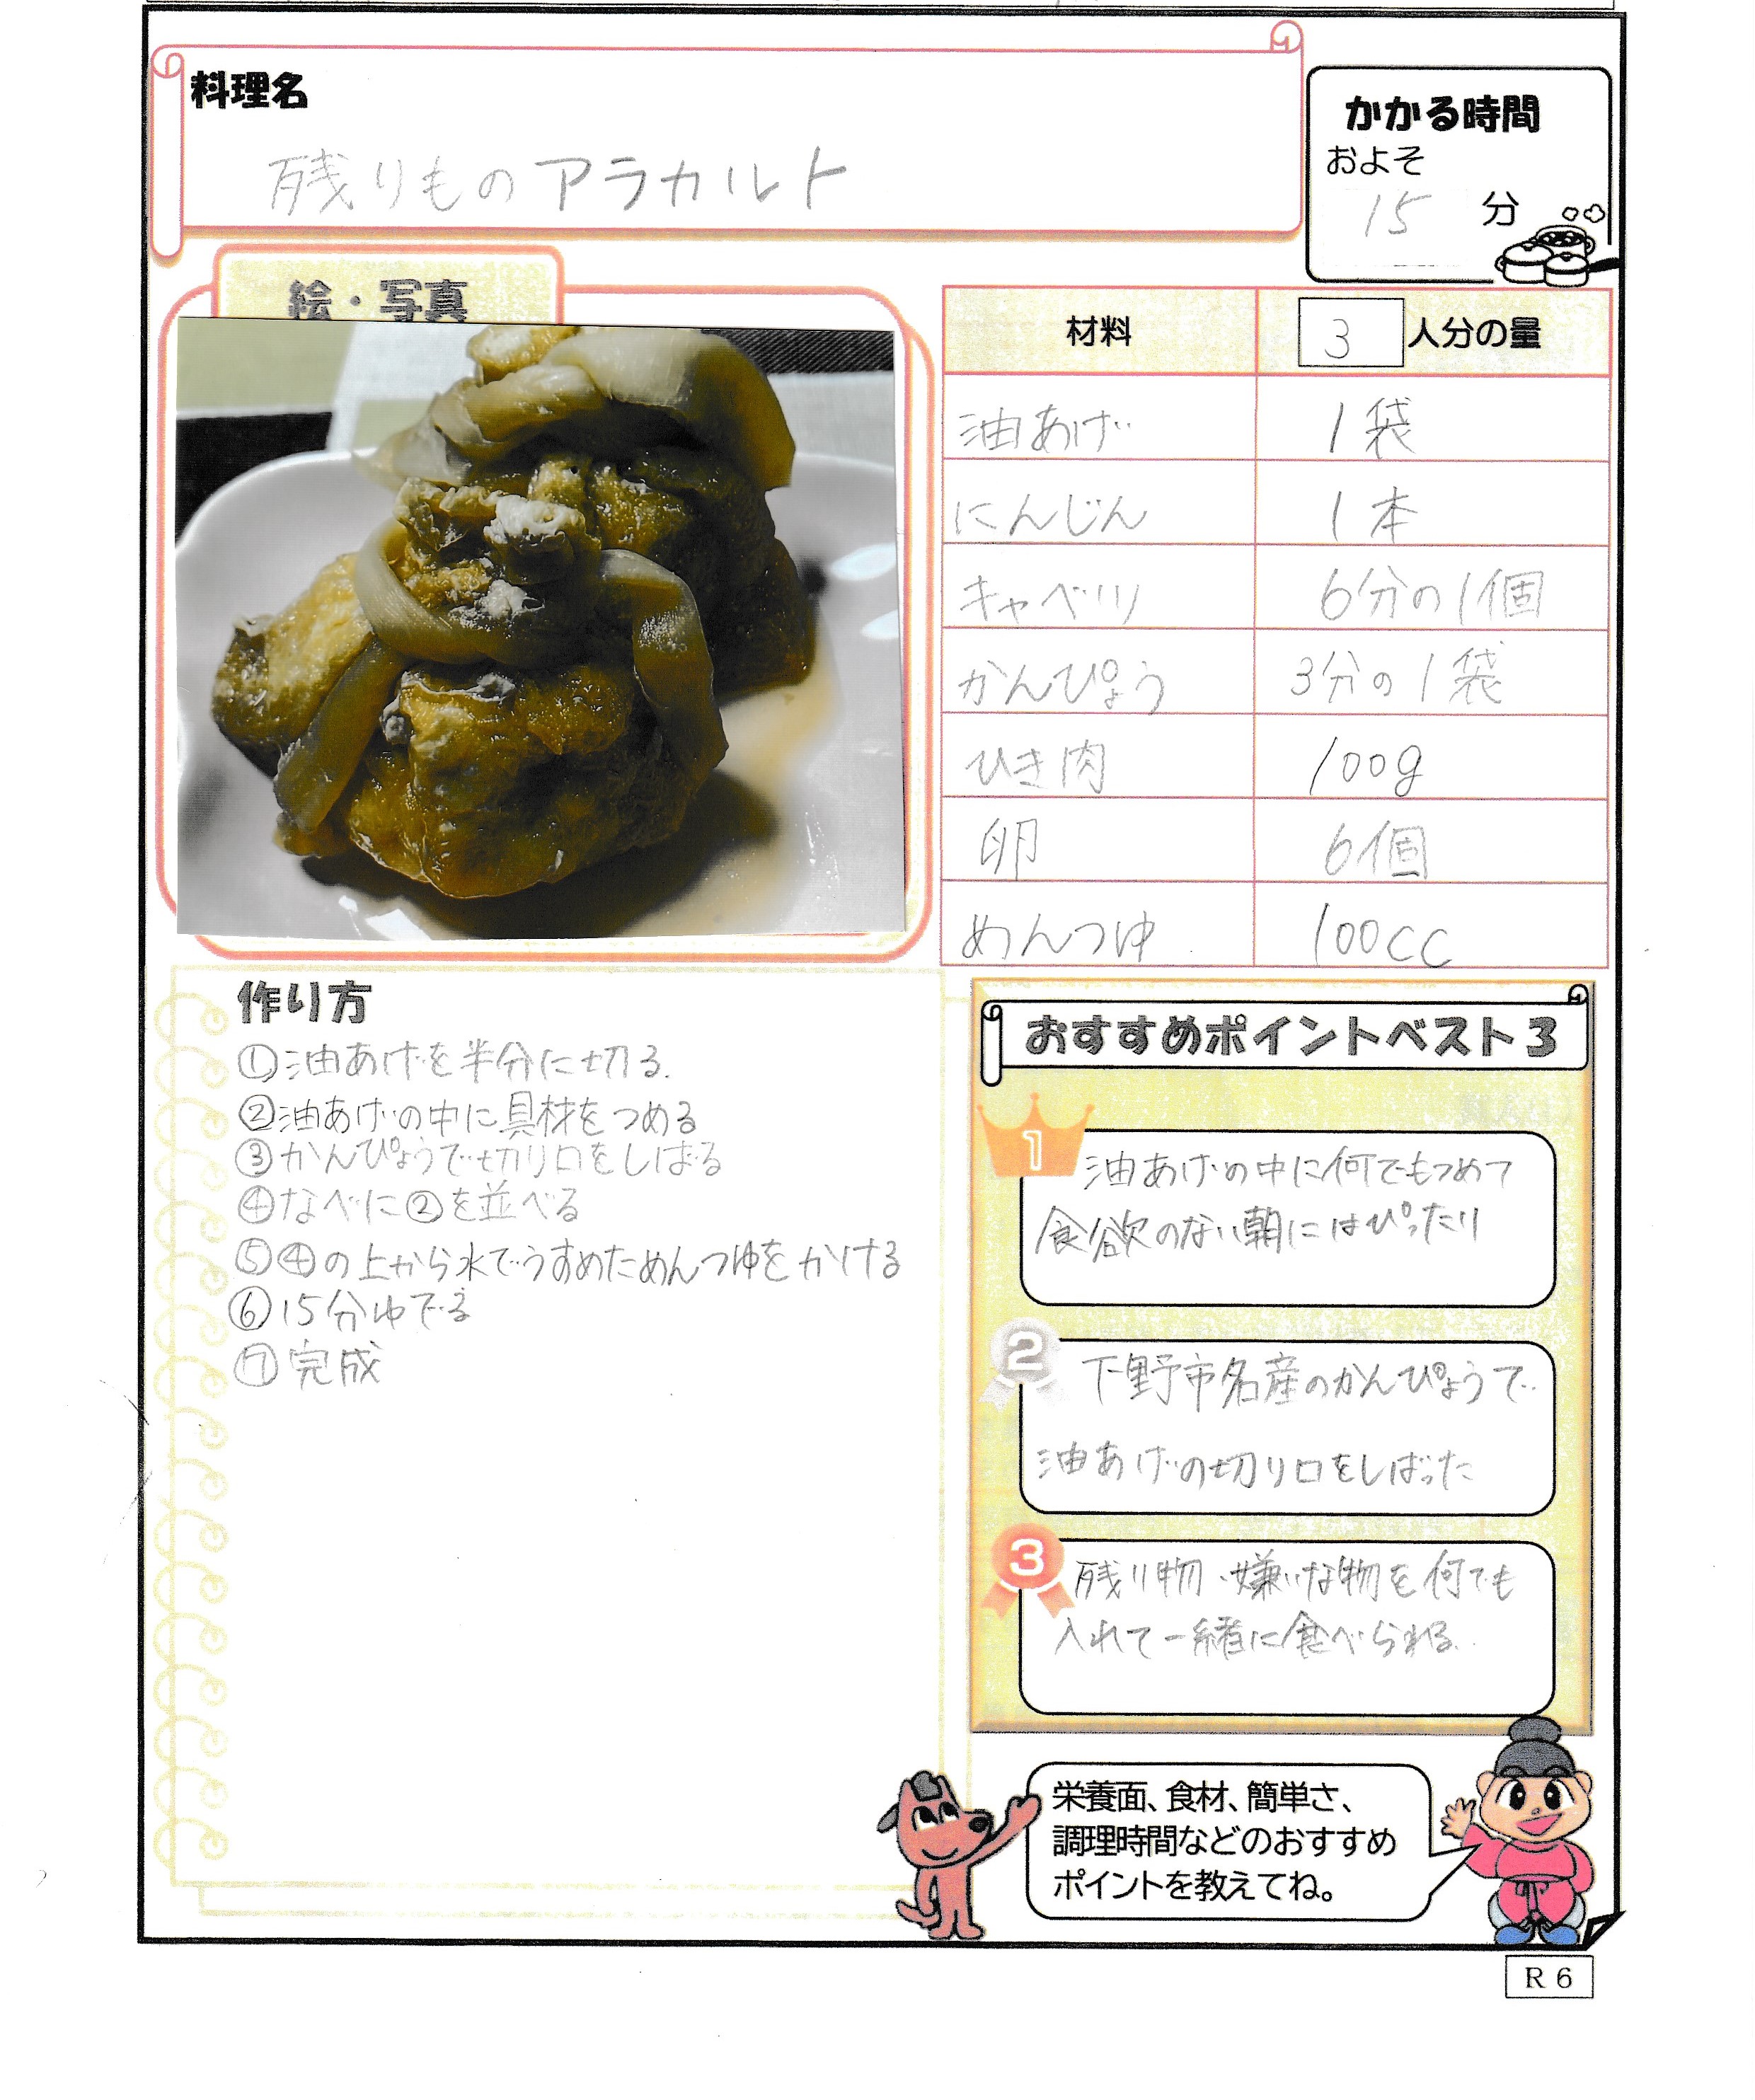 料理名
残りものアラカルト
かかる時間
およそ
15 分
絵・写真
材料 3 人分の量
油あげ 1袋
にんじん 1本
キャベツ 6分の1個
かんぴょう 3分の1袋
ひき肉 100g
卵 6個
めんつゆ 100cc
作り方
①油あげを半分に切る.
②油あげの中に具材をつめる
③かんぴょうで切り口をしばる
④なべに②を並べる
⑤④の上から水でうすめためんつゆをかける
⑥15分ゆでる
⑦完成
おすすめポイントベスト3
1
油あげの中に何でもつめて
食欲のない朝にはぴったり
2
下野市名産のかんぴょうで
油あげの切り口をしばった
3
残り物、嫌いな物を何でも
入れて一緒に食べられる.
栄養面、食材、簡単さ、
調理時間などのおすすめ
ポイントを教えてね。
R6